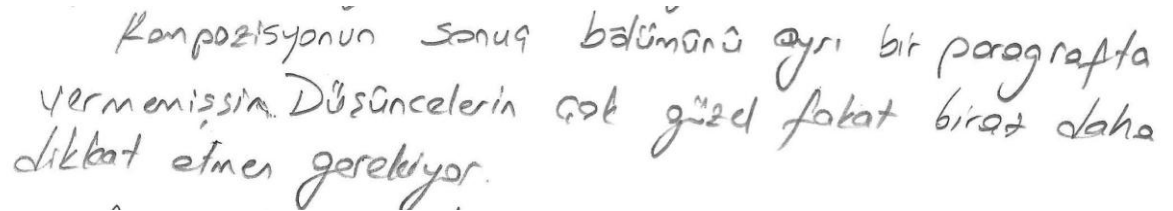 Kompozisyonun sonuç bölümünü ayrı bir paragrafta
vermemişsin. Düşüncelerin çok güzel fakat biraz daha
dikkat etmen gerekiyor.